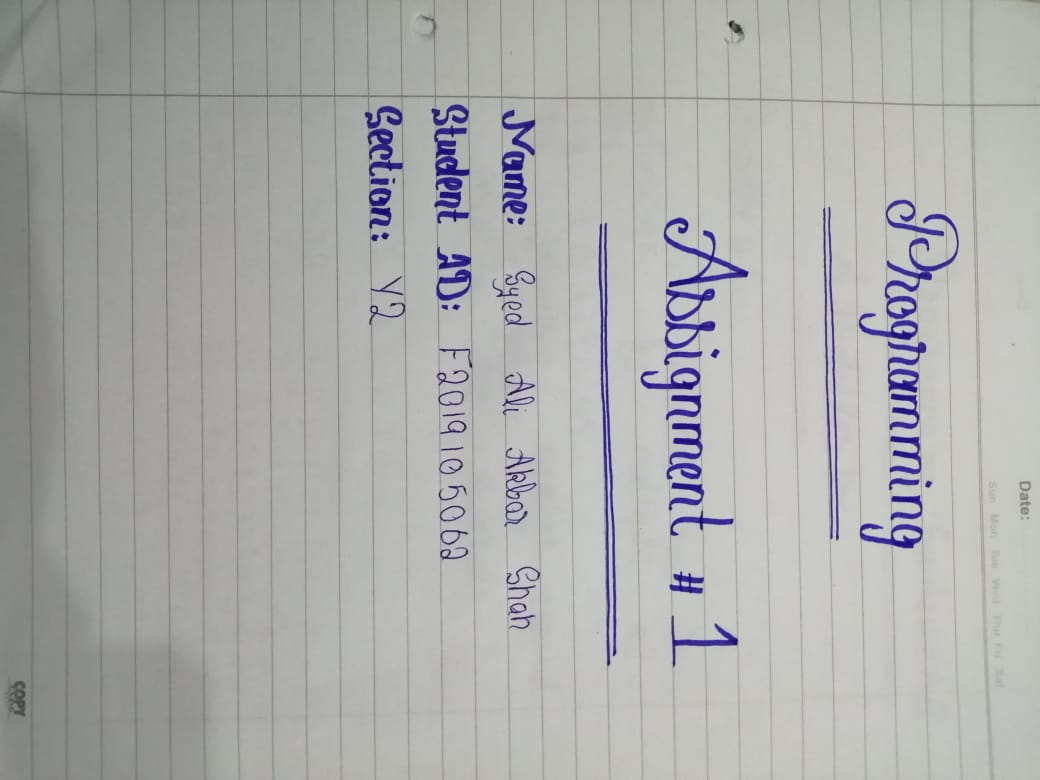 Date:
Sun Mon Tue Wed Thu Fri Sat
Programming
Assignment # 1
Name: Syed Ali Akbar Shah
Student ID: F2019105062
Section: Y2
COPY